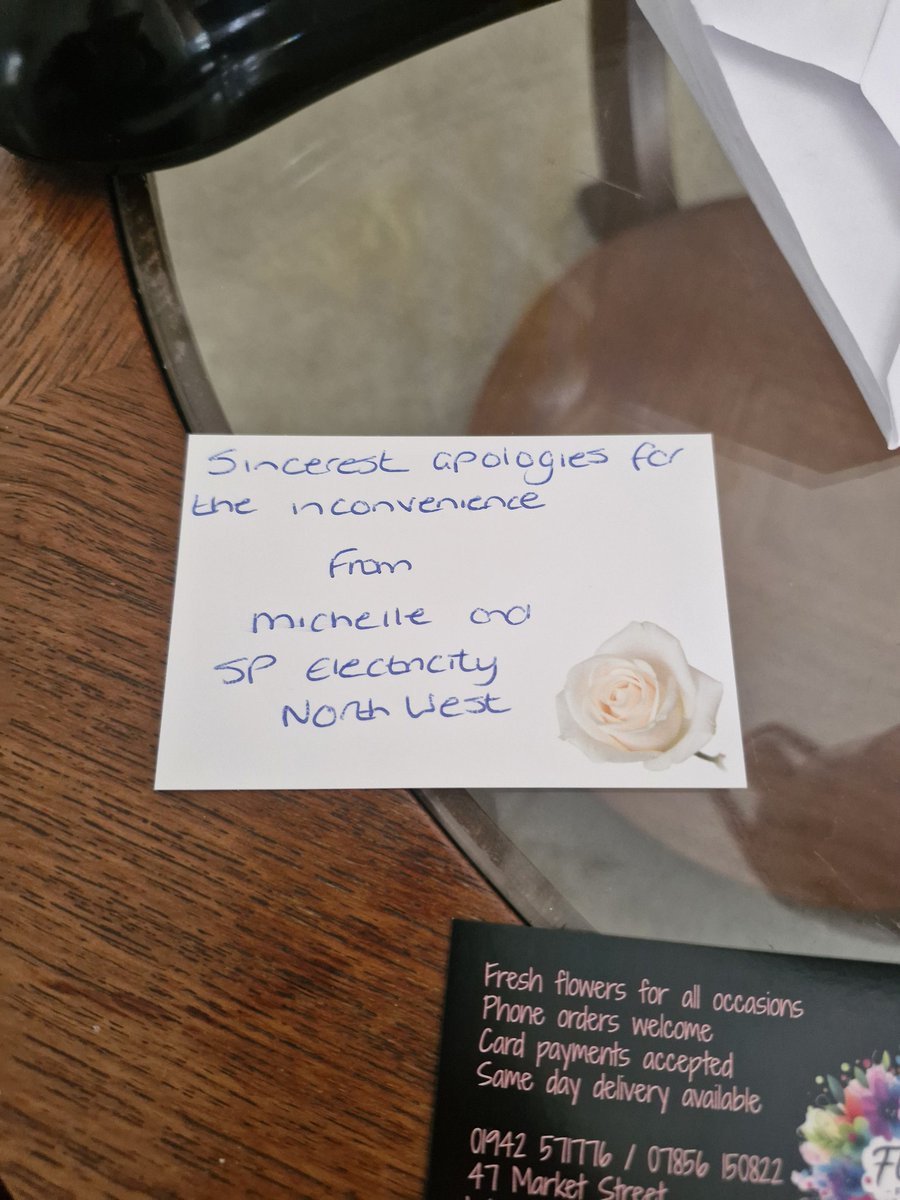 Sincerest apologies for
the inconvenience
From
Michelle and
SP Electricity
North West
Fresh flowers for all occasions
Phone orders welcome
Card payments accepted
Same day delivery available
01942 571776 / 07856 150822
47 Market Street